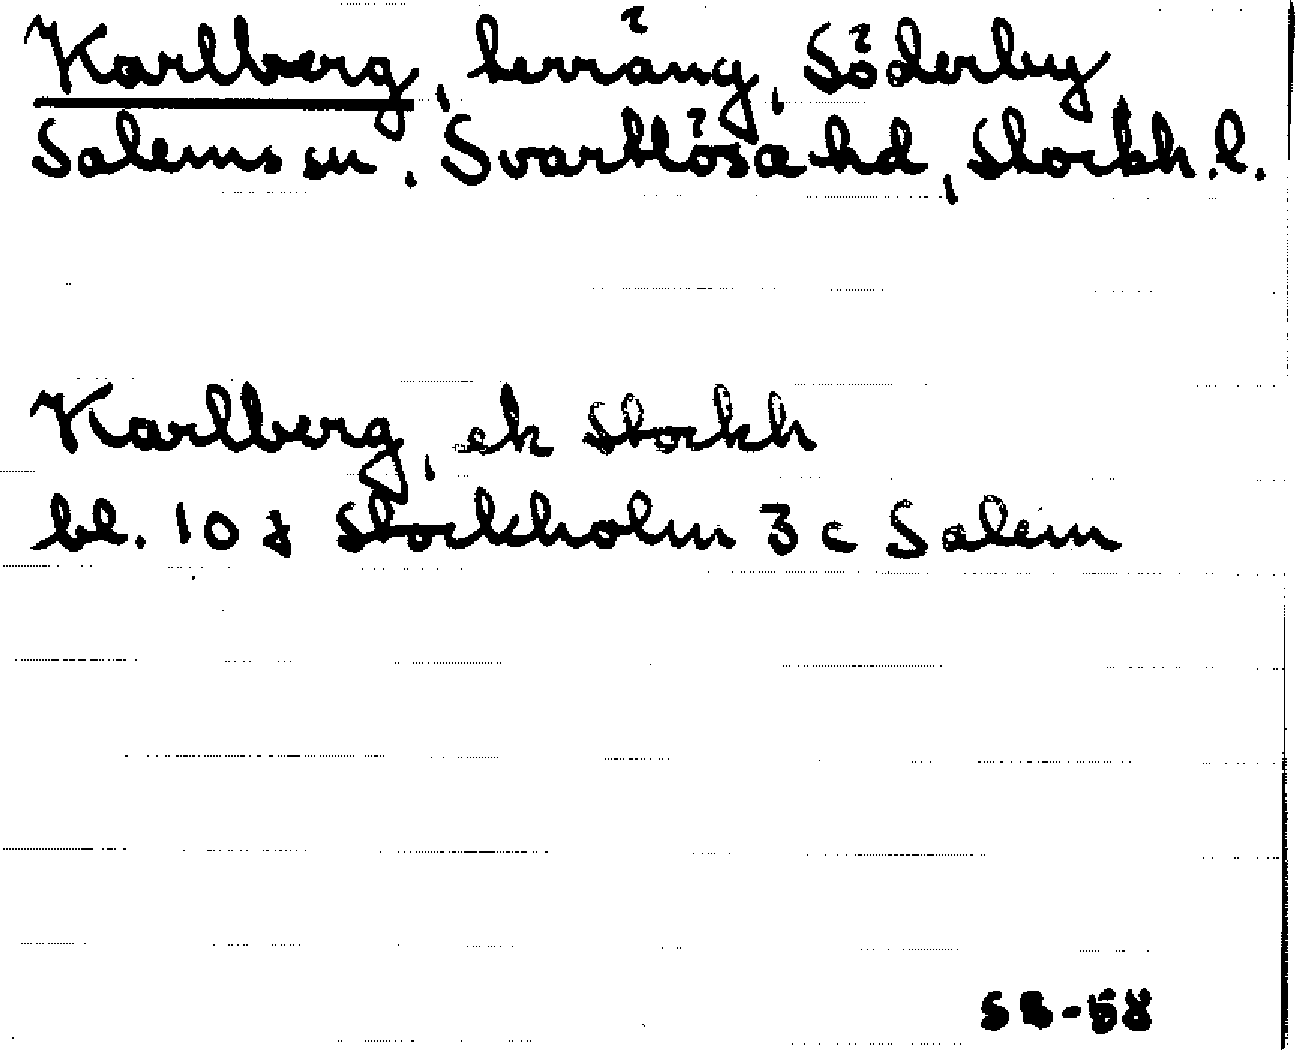 Karlberg, terräng, Söderby
Salems sn. Svartlösa hd, Stockh. l.
Karlberg, ek Stockh
bl. 10 J Stockholm 3 c Salem